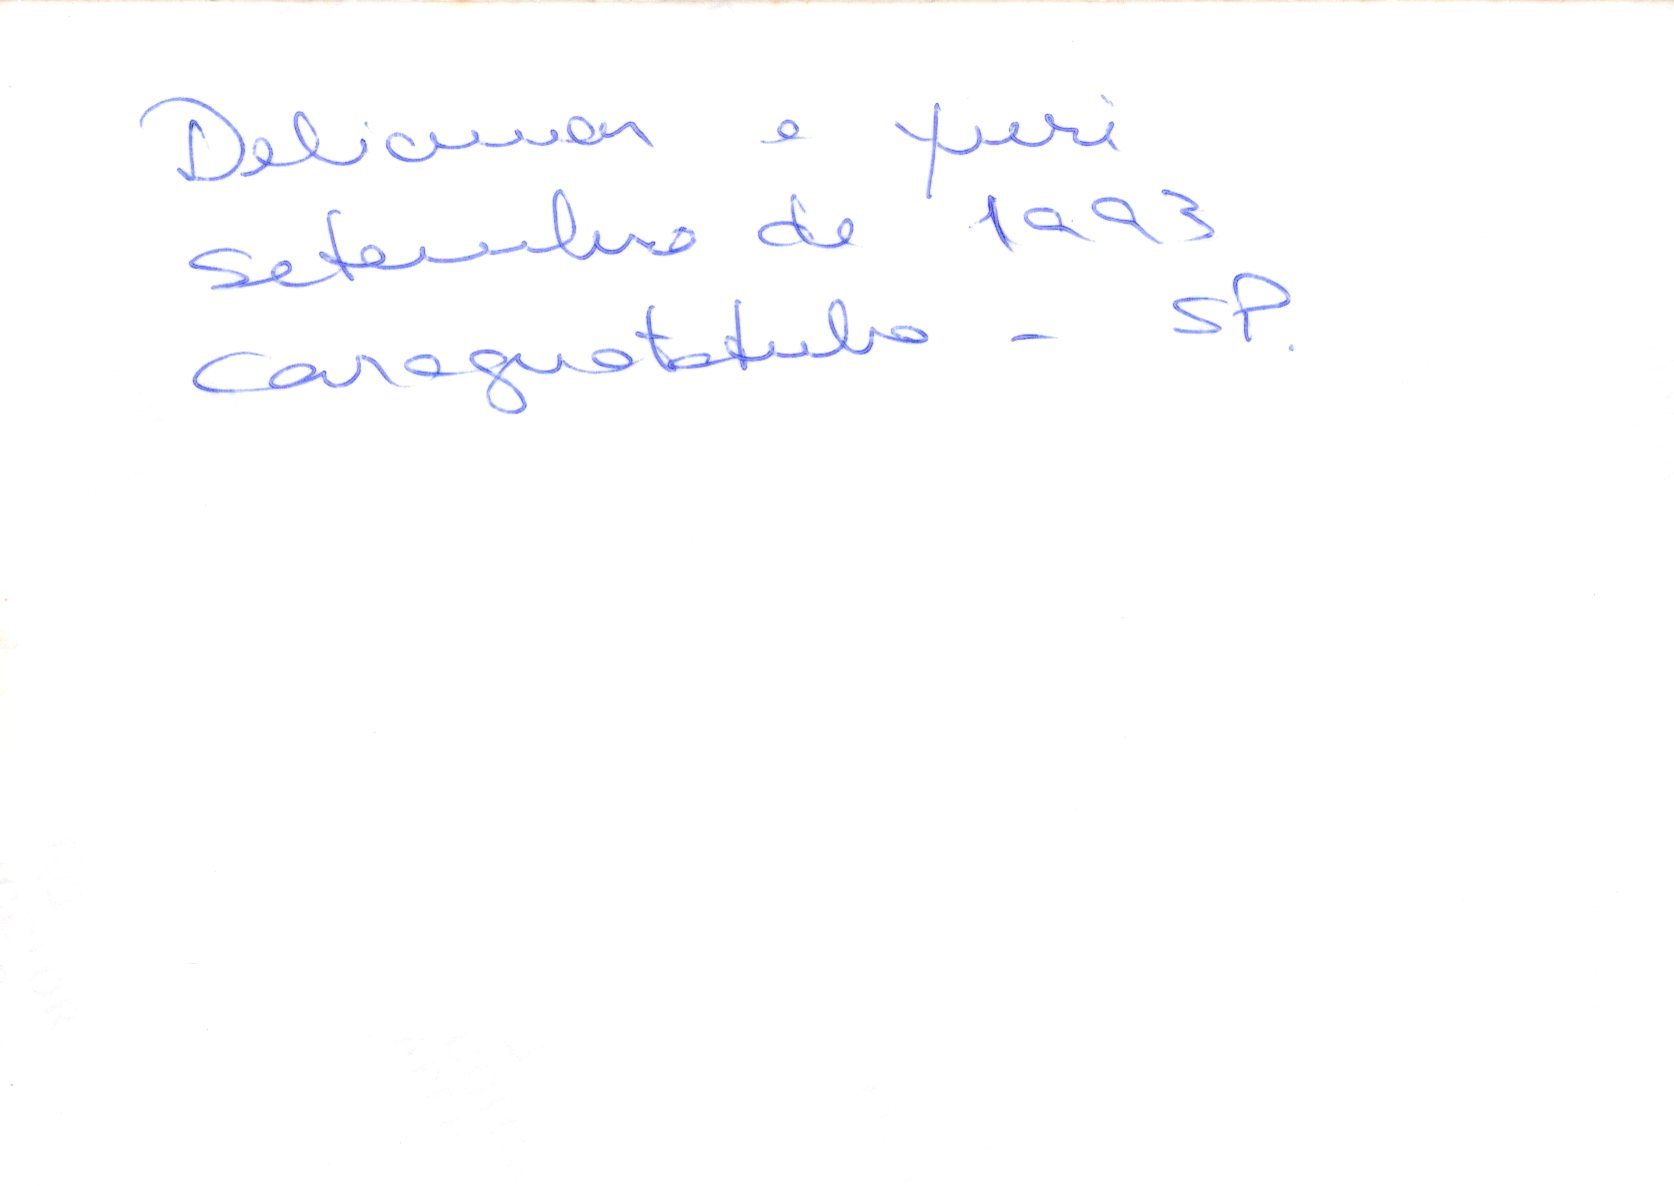 Deliamar e Yuri
setembro de 1993
Caraguatatuba - SP.